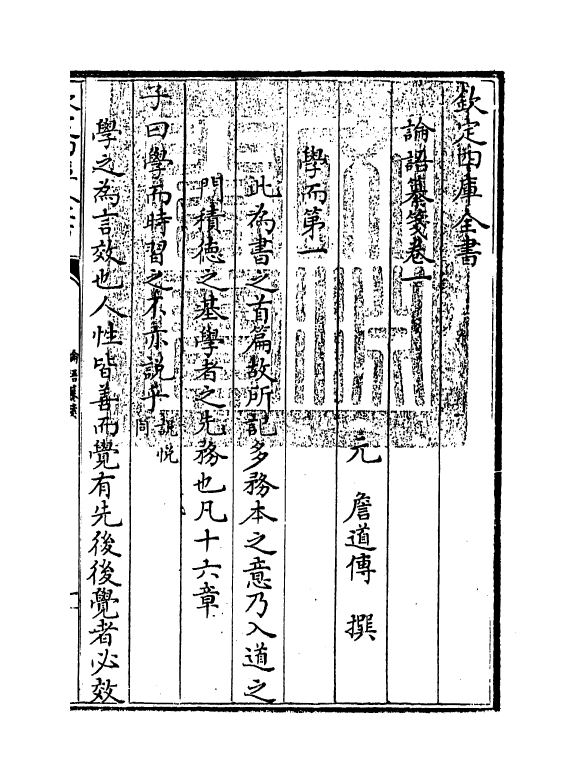 欽定四庫全書
論語纂箋卷一
元 詹道傳 撰
學而第一
此為書之首篇故所記多務本之意乃入道之
門積德之基學者之先務也凡十六章
子曰學而時習之不亦說乎說悅同
學之為言效也人性皆善而覺有先後後覺者必效